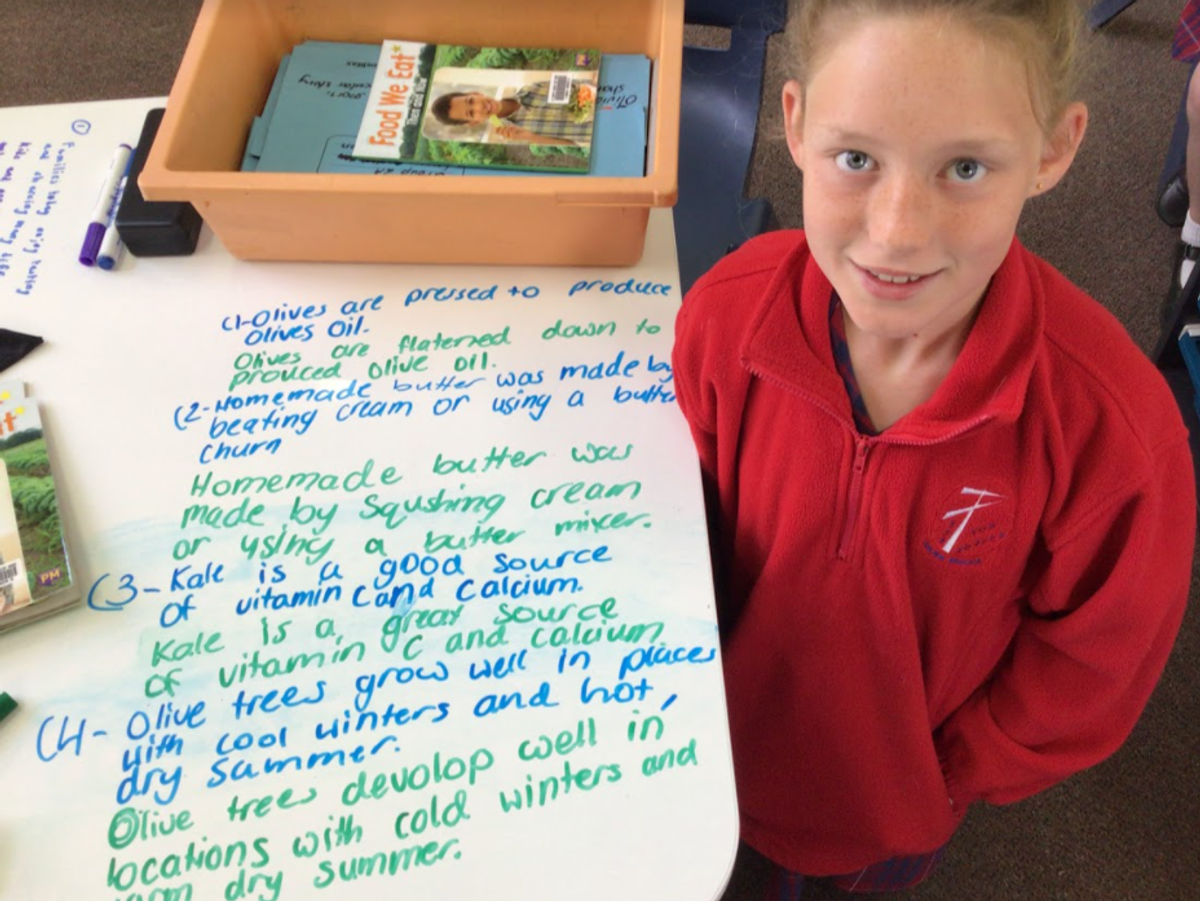 Food We Eat
Then and Now
C1-Olives are pressed to produce
Olives Oil.
Olives are flaterned down to
prouced olive oil.
C2-Homemade butter was made by
beating cream or using a butter
churn
Homemade butter was
made by Squshing cream
or using a butter mixer.
C3-Kale is a good source
of vitamin C and Calcium.
Kale is a great source
of vitamin C and calcium
C4-Olive trees grow well in places
with cool winters and hot,
dry summer.
Olive trees devolop well in
locations with cold winters and
warm dry summer.
PM